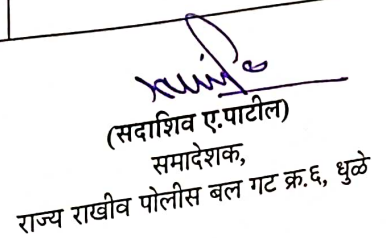 (सदाशिव ए.पाटील)
समादेशक,
राज्य राखीव पोलीस बल गट क्र.६, धुळे